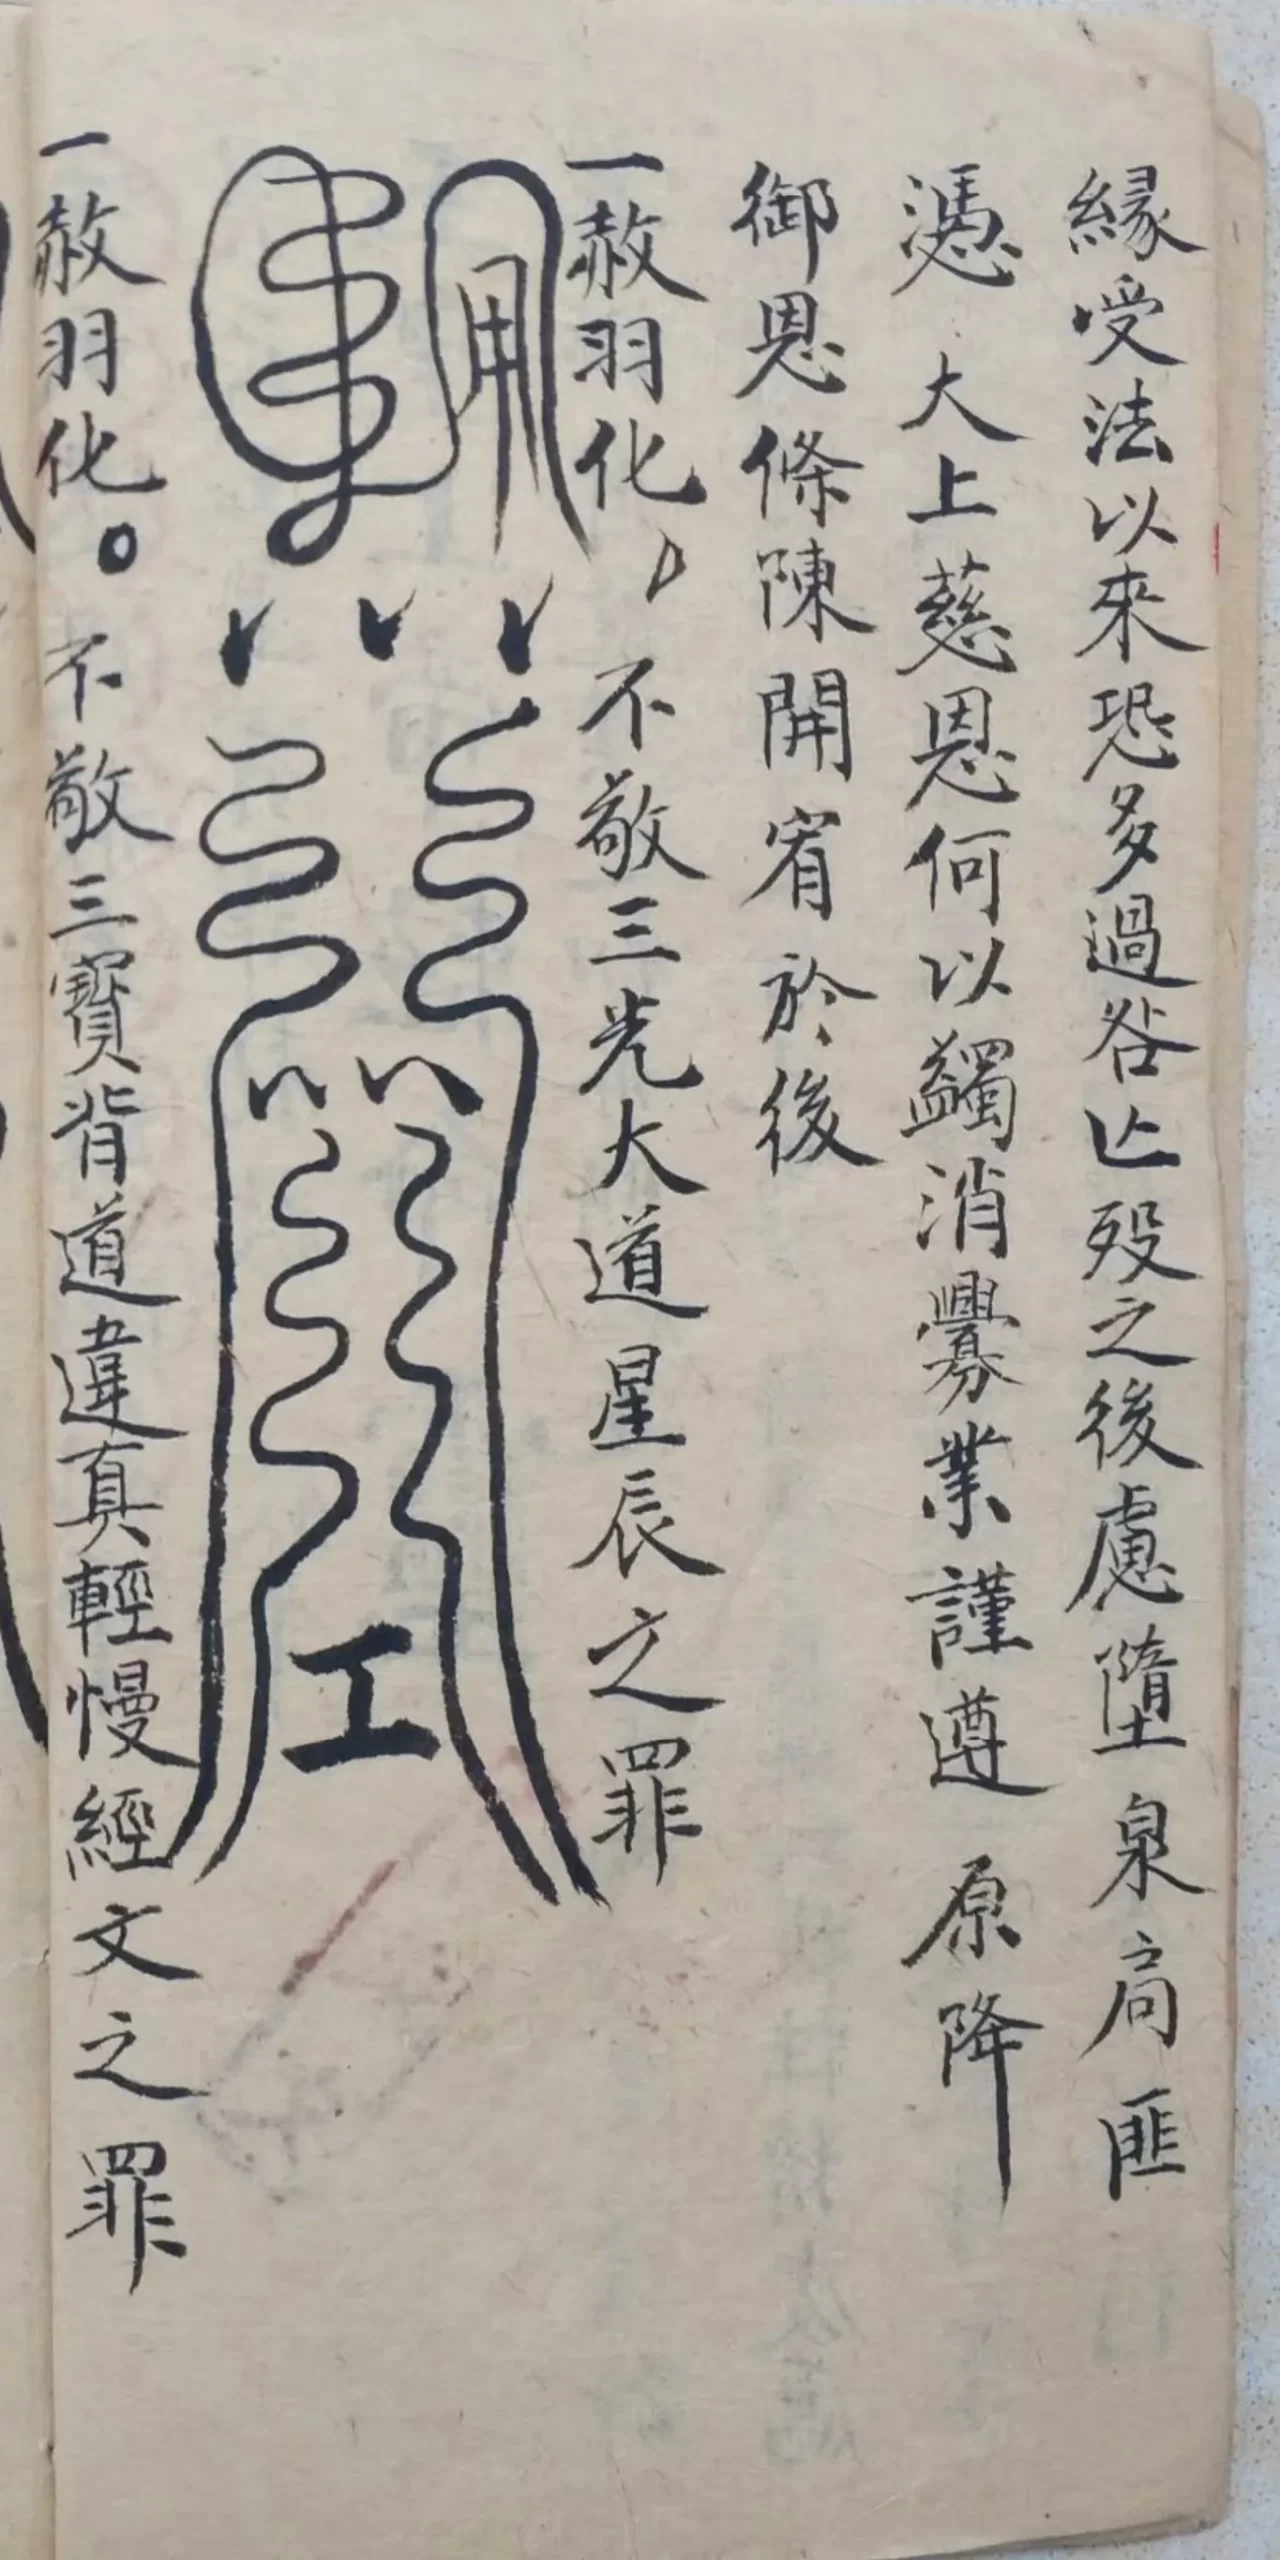 緣受法以來恐多過咎亡殁之後慮墮泉扃匪
憑 大上慈恩何以蠲消釁業謹遵 原降
御恩條陳開宥於後
一赦羽化。不敬三光大道星辰之罪
一赦羽化。不敬三寶背道違真輕慢經文之罪